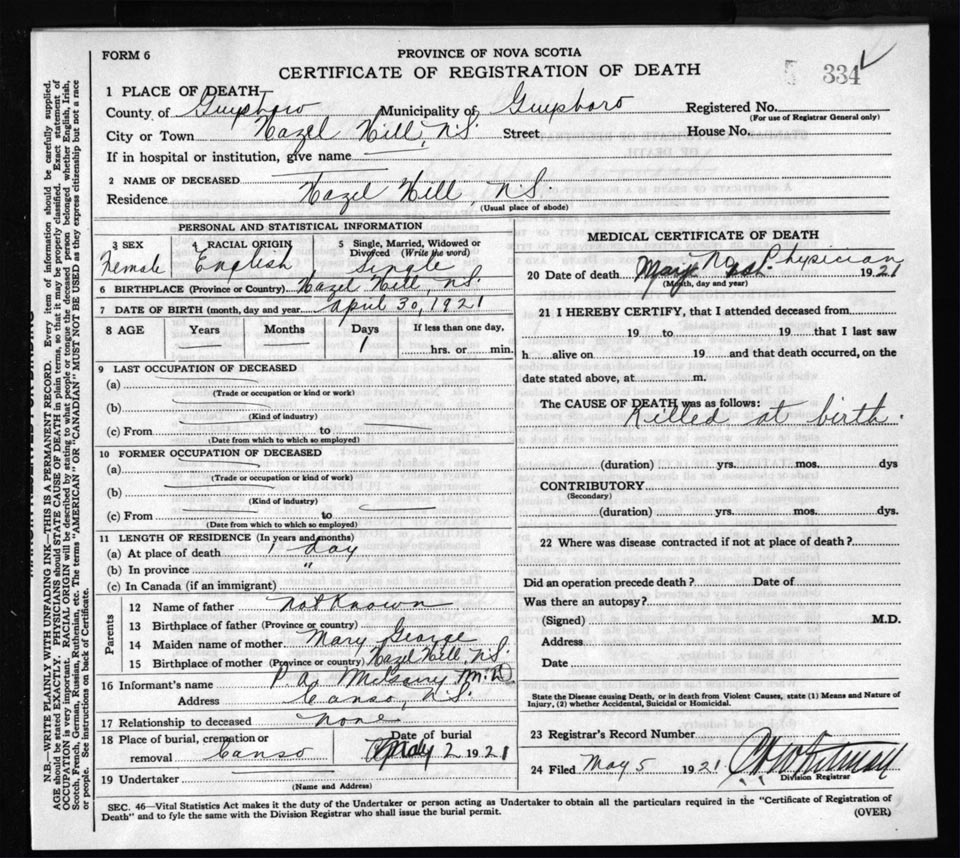 FORM 6
PROVINCE OF NOVA SCOTIA
CERTIFICATE OF REGISTRATION OF DEATH
334
1 PLACE OF DEATH
County of Guysboro Municipality of Guysboro Registered No.
(For use of Registrar General only)
City or Town Hazel Hill, N.S. Street House No.
If in hospital or institution, give name
2 NAME OF DECEASED
Residence Hazel Hill, N.S.
(Usual place of abode)
PERSONAL AND STATISTICAL INFORMATION
3 SEX Female
4 RACIAL ORIGIN English
5 Single, Married, Widowed or Divorced (Write the word) Single
6 BIRTHPLACE (Province or Country) Hazel Hill, N.S.
7 DATE OF BIRTH (month, day and year) April 30, 1921
8 AGE Years Months Days If less than one day,
1 hrs. or min.
9 LAST OCCUPATION OF DECEASED
(a)
(Trade or occupation or kind or work)
(b)
(Kind of industry)
(c) From to
(Date from which to which so employed)
10 FORMER OCCUPATION OF DECEASED
(a)
(Trade or occupation or kind of work)
(b)
(Kind of industry)
(c) From to
(Date from which to which so employed)
11 LENGTH OF RESIDENCE (In years and months)
(a) At place of death 1 day
(b) In province "
(c) In Canada (if an immigrant)
Parents
12 Name of father not Known
13 Birthplace of father (Province or country)
14 Maiden name of mother Mary George
15 Birthplace of mother (Province or country) Hazel Hill, N.S.
16 Informant's name P. A. M.D.
Address Canso, N.S.
17 Relationship to deceased none
18 Place of burial, cremation or removal Canso Date of burial May 2 1921
19 Undertaker
(Name and Address)
MEDICAL CERTIFICATE OF DEATH
20 Date of death No Physician 1921
(Month, day and year)
21 I HEREBY CERTIFY, that I attended deceased from
19 to 19 that I last saw
h alive on 19 and that death occurred, on the
date stated above, at m.
The CAUSE OF DEATH was as follows:
Killed at birth.
(duration) yrs. mos. dys
CONTRIBUTORY
(Secondary)
(duration) yrs. mos. dys.
22 Where was disease contracted if not at place of death?
Did an operation precede death? Date of
Was there an autopsy?
(Signed) M.D.
Address
Date
State the Disease causing Death, or in death from Violent Causes, state (1) Means and Nature of
Injury, (2) whether Accidental, Suicidal or Homicidal.
23 Registrar's Record Number
24 Filed May 5 1921
Division Registrar
SEC. 46—Vital Statistics Act makes it the duty of the Undertaker or person acting as Undertaker to obtain all the particulars required in the "Certificate of Registration of
Death" and to fyle the same with the Division Registrar who shall issue the burial permit. (OVER)
N.B.—WRITE PLAINLY WITH UNFADING INK—THIS IS A PERMANENT RECORD. Every item of information should be carefully supplied.
AGE should be stated EXACTLY. PHYSICIANS should STATE CAUSE OF DEATH in plain terms, so that it may be properly classified. Exact statement of
OCCUPATION is very important. RACIAL ORIGIN will be described by stating to what people or tongue the deceased person belonged whether English, Irish,
Scotch, French, German, Russian, Ruthenian, etc. The terms "AMERICAN" OR "CANADIAN" MUST NOT BE USED as they express citizenship but not a race
or people. See instructions on back of Certificate.